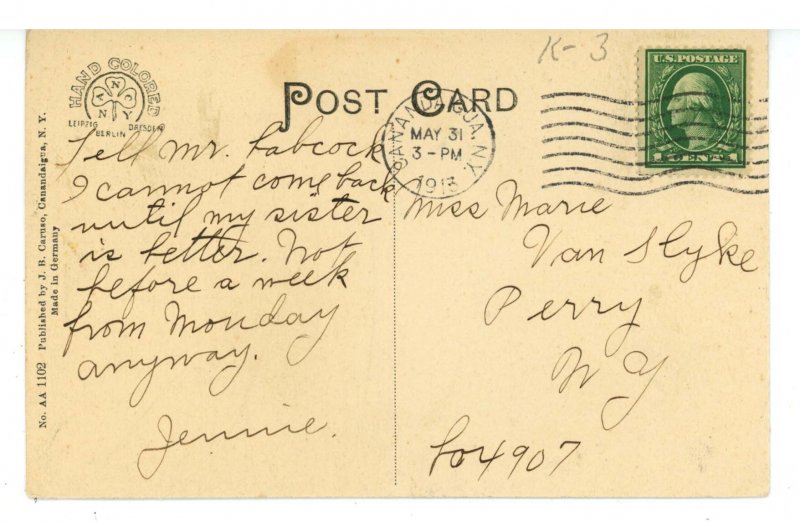 K-3
HAND COLORED
A N C
N Y
LEIPZIG DRESDEN
BERLIN
POST CARD
CANANDAIGUA, N.Y.
MAY 31
3-PM
1913
U.S. POSTAGE
1 CENT 1
Tell Mr. Babcock
I cannot come back
until my sister
is better. Not
before a week
from Monday
anyway.
Jennie.
Miss Marie
Van Slyke
Perry
N Y
4907
No. AA 1102 Published by J. B. Caruso, Canandaigua, N. Y.
Made in Germany